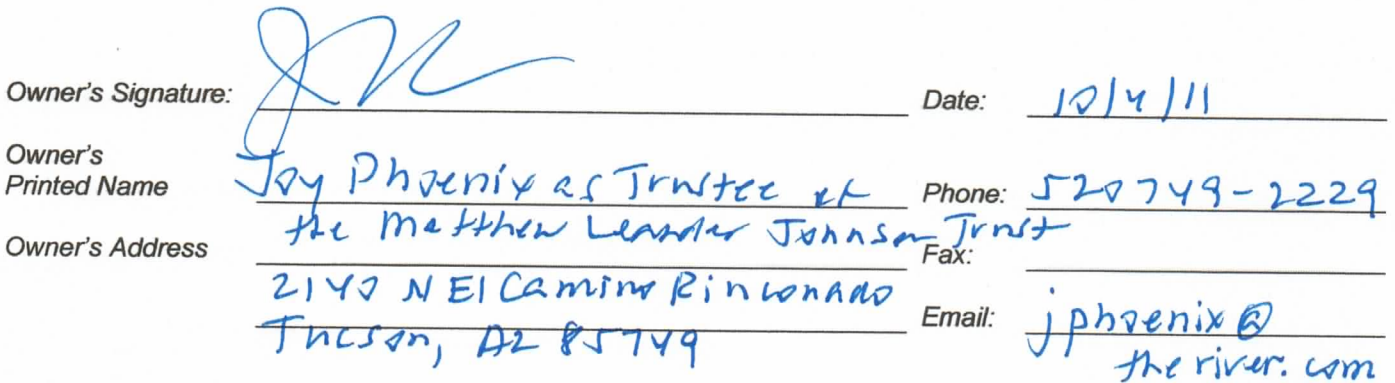 Owner's Signature: Date: 10/4/11
Owner's
Printed Name Joy Phoenix as Trustee of Phone: 520 749-2229
the Matthew Leander Johnson Trust
Owner's Address Fax:
2140 N El Camino Rinconado
Tucson, AZ 85749 Email: jphoenix@
theriver.com